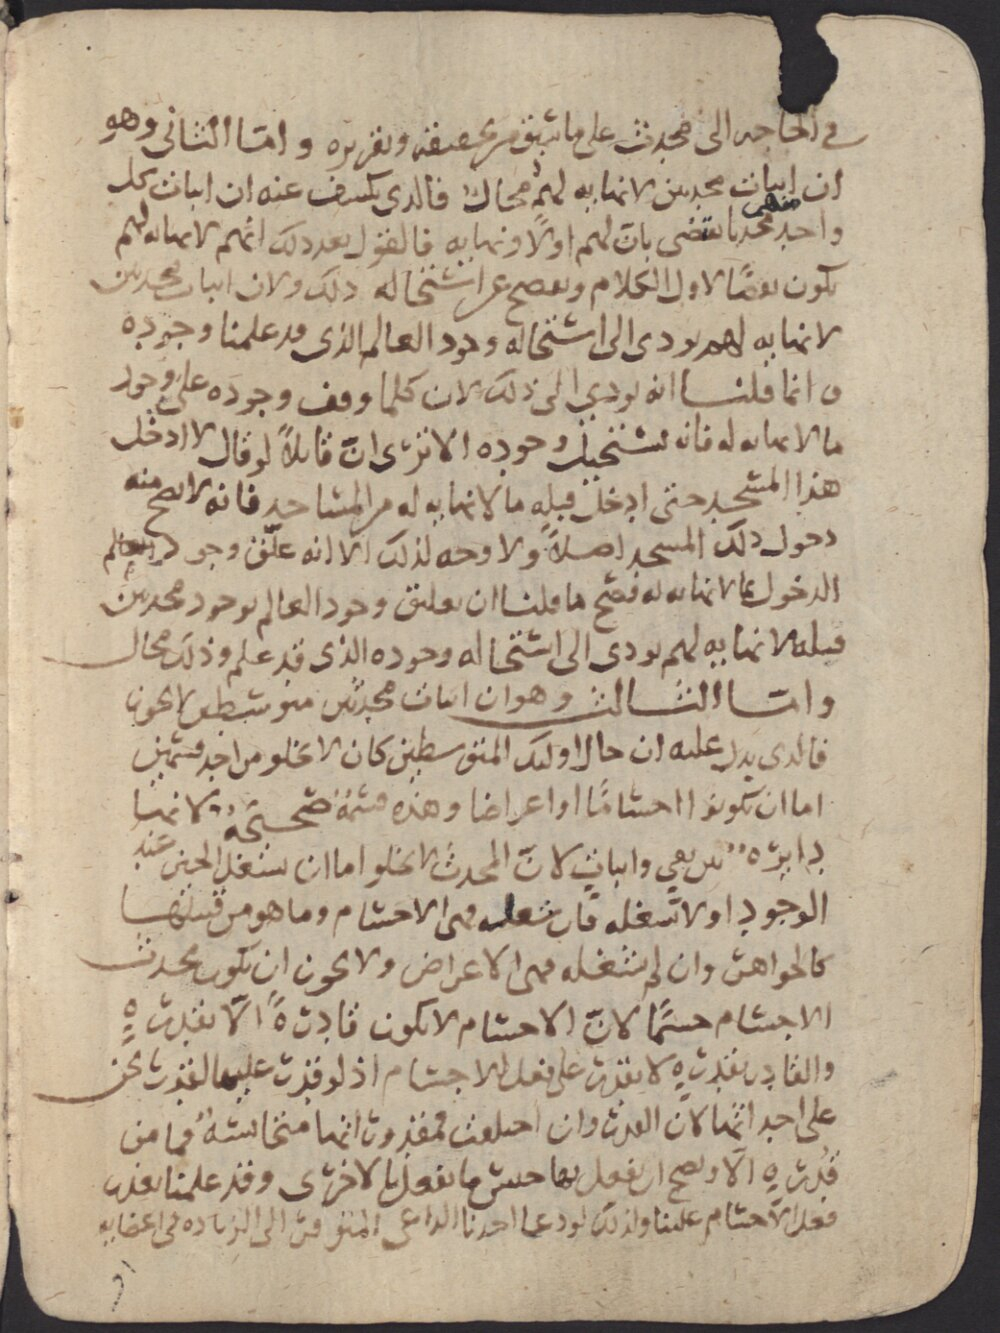 في الحاجه الى محدث على ما سبق من تحقيقه وتقريره واما الثاني وهو
ان اثبات محدثين لا نهايه لهم محال فالذي يكشف عنه ان اثبات كل
واحد منهم محدثا يقتضي بان لهم اولا ونهايه فالقول بعد ذلك انهم لا نهايه لهم
يكون نقضا لاول الكلام ويفصح عن استحاله ذلك ولان اثبات محدثين
لا نهايه لهم يودي الى استحاله وجود العالم الذي قد علمنا وجوده
وانما قلنا انه يودي الى ذلك لان كلما وقف وجوده على وجود
ما لا نهايه له فانه يستحيل وجوده الا ترى ان قايلا لو قال لا ادخل
هذا المسجد حتى ادخل قبله ما لا نهايه له من المساجد فانه لا يصح منه
دخول ذلك المسجد اصلا ولا وجه لذلك الا انه علق وجود
الدخول بما لا نهايه له فصح ما قلنا ان تعليق وجود العالم بوجود محدثين
قبله لا نهايه لهم يودي الى استحاله وجوده الذي قد علم وذلك محال
واما الثالث وهو ان اثبات محدثين متوسطين لا يجوز
فالذي يدل عليه ان حال اوليك المتوسطين كان لا يخلو من احد قسمين
اما ان يكونوا اجساما او اعراضا وهذه قسمة صحيحة لانها
دايرة بين نفي واثبات لان المحدث لا يخلو اما ان يشغل الحيز عند
الوجود او لا يشغله فان شغله فهي الاجسام وما هو من قبيلها
كالجواهر وان لم يشغله فهي الاعراض ولا يجوز ان يكون محدث
الاجسام جسما لان الاجسام لا تكون قادرة الا بقدرة
والقادر بقدرة لا يقدر على فعل الاجسام اذ لو قدر عليها لقدر نحن
على احداثها لان القدر وان اختلفت فمقدوراتها متجانسة فما من
قدرة الا ويصح ان يفعل بها جنس ما يفعل بالاخرى وقد علمنا تعذر
فعل الاجسام علينا ولذلك لو دعا احدنا الداعي المتوفر الى الزياده في اعضايه